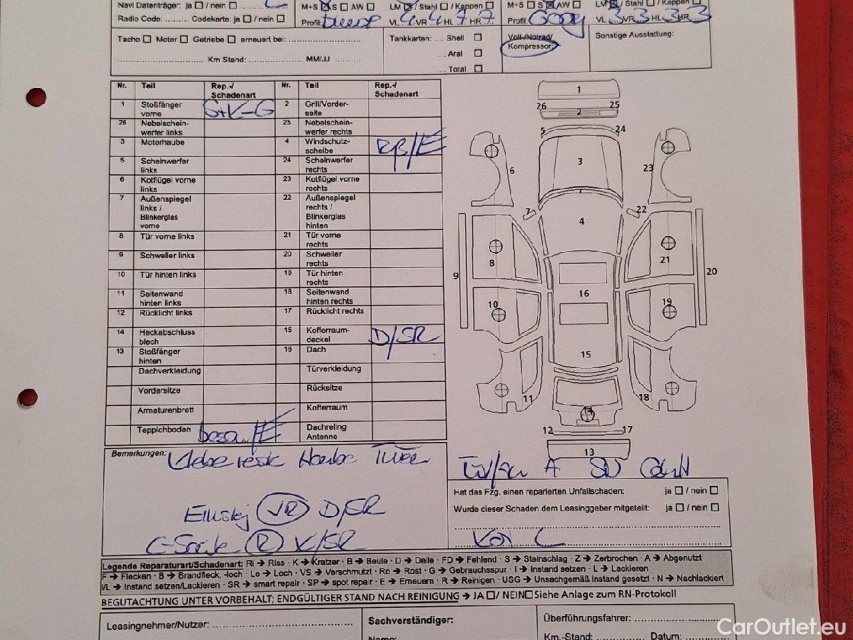 Navi Datenträger: ja □ / nein □
M+S S □ AW □
LM / Stahl □ / Kappen □
M+S □ S AW □
LM / Stahl □ / Kappen □
Radio Code: Codekarte: ja □ / nein □
Profil: VL 4 VR 4 HL 7 HR 7
Profil: VL 3 VR 3 HL 3 HR 3
Tacho □ Motor □ Getriebe □ erneuert bei:
Km Stand: MM/JJ
Tankkarten: Shell □
Aral □
Total □
Voll-/Notrad/
Kompressor
Sonstige Ausstattung:
Nr. Teil Rep.-/ Schadenart Nr. Teil Rep.-/ Schadenart
1 Stoßfänger vorne S+K-G 2 Grill/Vorderseite
26 Nebelscheinwerfer links 25 Nebelscheinwerfer rechts
3 Motorhaube 4 Windschutzscheibe
5 Scheinwerfer links 24 Scheinwerfer rechts
6 Kotflügel vorne links 23 Kotflügel vorne rechts
7 Außenspiegel links / Blinkerglas vorne 22 Außenspiegel rechts / Blinkerglas hinten
8 Tür vorne links 21 Tür vorne rechts
9 Schweller links 20 Schweller rechts
10 Tür hinten links 19 Tür hinten rechts
11 Seitenwand hinten links 18 Seitenwand hinten rechts
12 Rücklicht links 17 Rücklicht rechts
14 Heckabschlussblech 15 Kofferraumdeckel D/SR
13 Stoßfänger hinten 16 Dach
Dachverkleidung Türverkleidung
Vordersitze Rücksitze
Armaturenbrett Kofferraum
Teppichboden Dachreling Antenne
1
26 25
2
5 24
3
6 23
7 22
4
8 21
9 20
16
10 19
15
11 18
14
12 17
13
Bemerkungen: Klebereste Haube Türen
Einstieg VR D/SR
C-Säule R K/SR
Hat das Fzg. einen reparierten Unfallschaden: ja □ / nein □
Wurde dieser Schaden dem Leasinggeber mitgeteilt: ja □ / nein □
Legende Reparaturart/Schadenart: Ri → Riss · K → Kratzer · B → Beule · D → Delle · FD → Fehlend · S → Steinschlag · Z → Zerbrochen · A → Abgenutzt
F → Flecken · B → Brandfleck, -loch · Lo → Loch · VS → Verschmutzt · Ro → Rost · G → Gebrauchsspur · I → Instand setzen · L → Lackieren
I/L → Instand setzen/Lackieren · SR → smart repair · SP → spot repair · E → Erneuern · R → Reinigen · USG → Unsachgemäß instand gesetzt · N → Nachlackiert
BEGUTACHTUNG UNTER VORBEHALT; ENDGÜLTIGER STAND NACH REINIGUNG → JA □ / NEIN □ Siehe Anlage zum RN-Protokoll
Leasingnehmer/Nutzer: Sachverständiger: Überführungsfahrer:
Name: Km.-Stand: Datum:
CarOutlet.eu